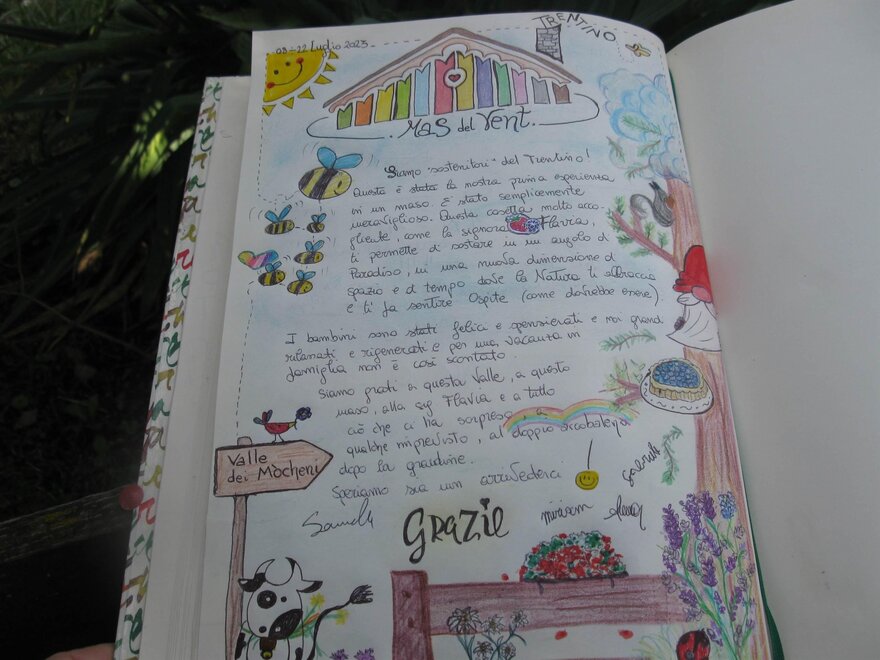 08-22 Luglio 2023
TRENTINO
Mas del Vent.
Siamo "sostenitori" del Trentino!
Questa è stata la nostra prima esperienza
in un maso. È stato semplicemente
meraviglioso. Questa casetta molto acco-
gliente, come la signora Flavia,
ti permette di sostare in un angolo di
Paradiso, in una nuova dimensione di
spazio e di tempo dove la Natura ti abbraccia
e ti fa sentire Ospite (come dovrebbe essere)
I bambini sono stati felici e spensierati e noi grandi
rilassati e rigenerati e per una vacanza in
famiglia non è così scontato.
Siamo grati a questa Valle, a questo
maso, alla sig Flavia e a tutto
ciò che ci ha sorpreso, a
qualche imprevisto, al doppio arcobaleno
dopo la grandine.
Speriamo sia un arrivederci!
Valle
dei Mòcheni
GRAZIE
miriam